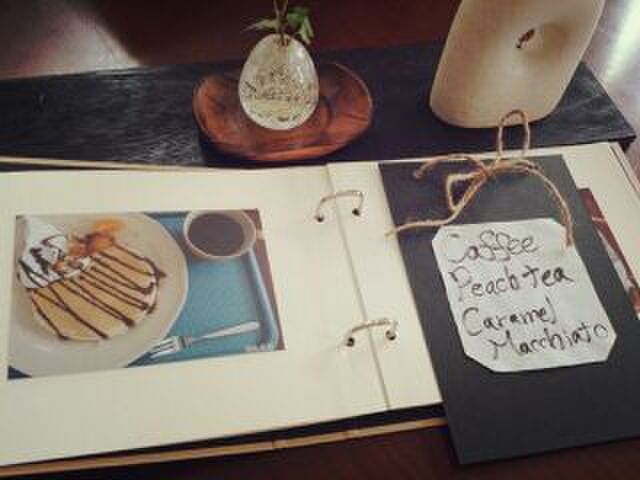 Coffee
Peach tea
Caramel
Macchiato